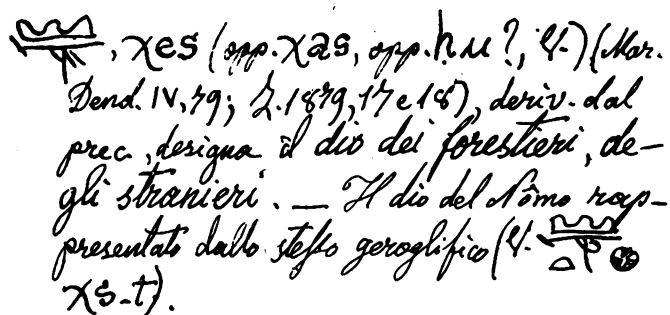 , χes (opp. χas, opp. hu?, V.) (Mar.
Dend. IV, 79; Z. 1879, 17 e 18), deriv. dal
prec., designa il dio dei forestieri, de-
gli stranieri. — Il dio del Nômo rap-
presentato dallo stesso geroglifico (V.
χs-t).